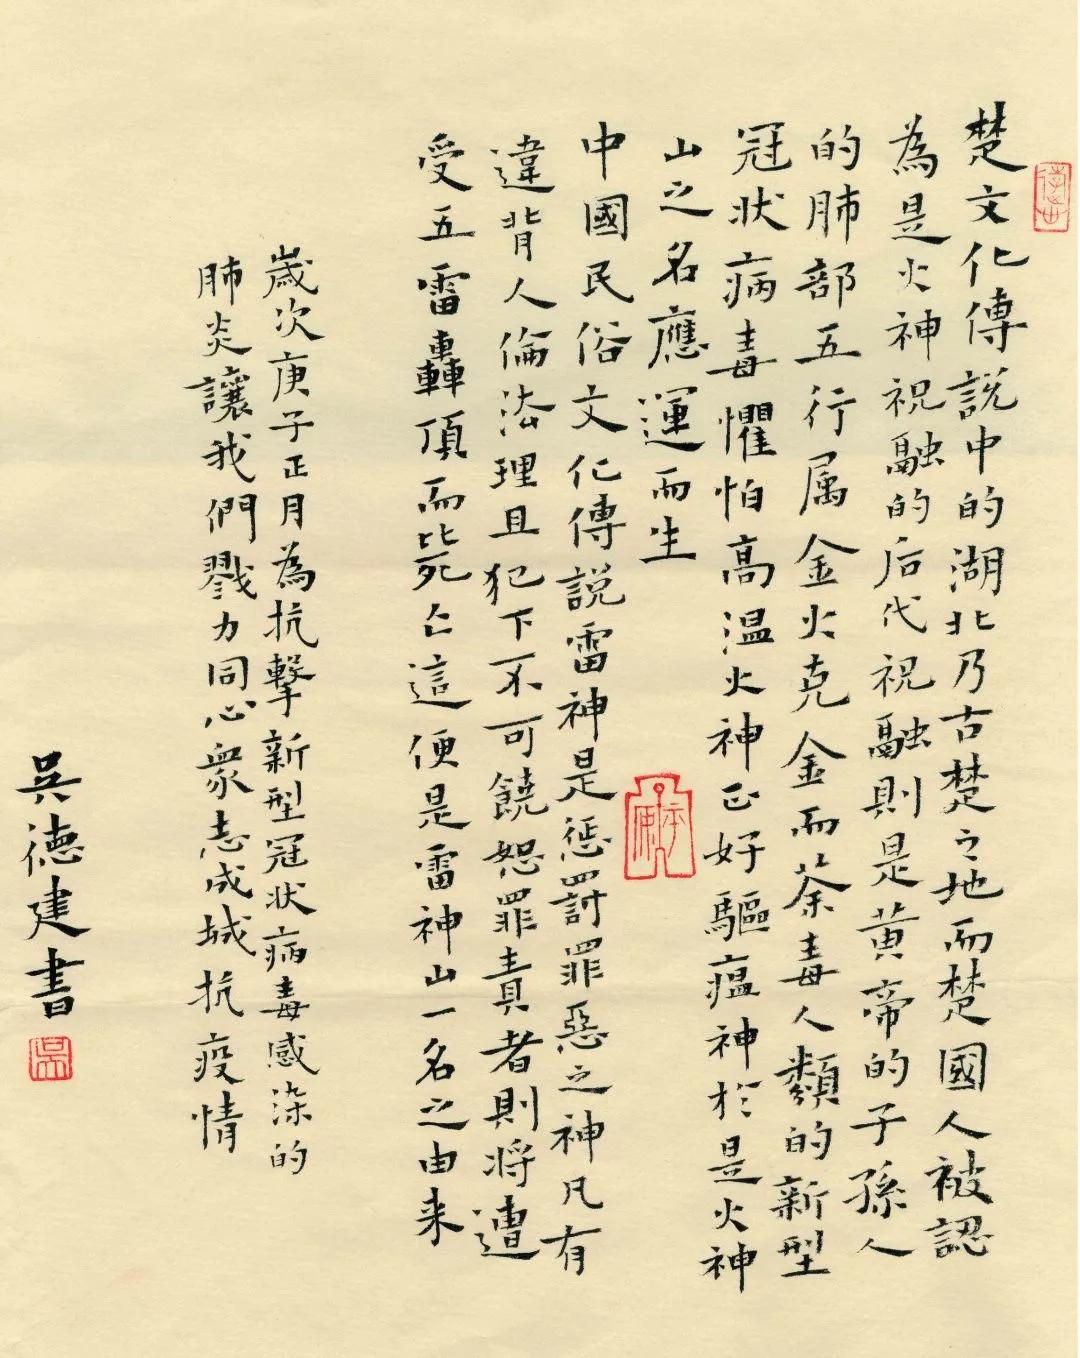 楚文化傳説中的湖北乃古楚之地而楚國人被認
為是火神祝融的后代祝融則是黄帝的子孫人
的肺部五行属金火克金而荼毒人類的新型
冠状病毒懼怕高温火神正好驅瘟神於是火神
山之名應運而生
中國民俗文化傳説雷神是惩罰罪惡之神凡有
違背人倫法理且犯下不可饒恕罪責者則将遭
受五雷轟頂而毙亡這便是雷神山一名之由来
歲次庚子正月為抗擊新型冠状病毒感染的
肺炎讓我們戮力同心衆志成城抗疫情
吳德建書
吳